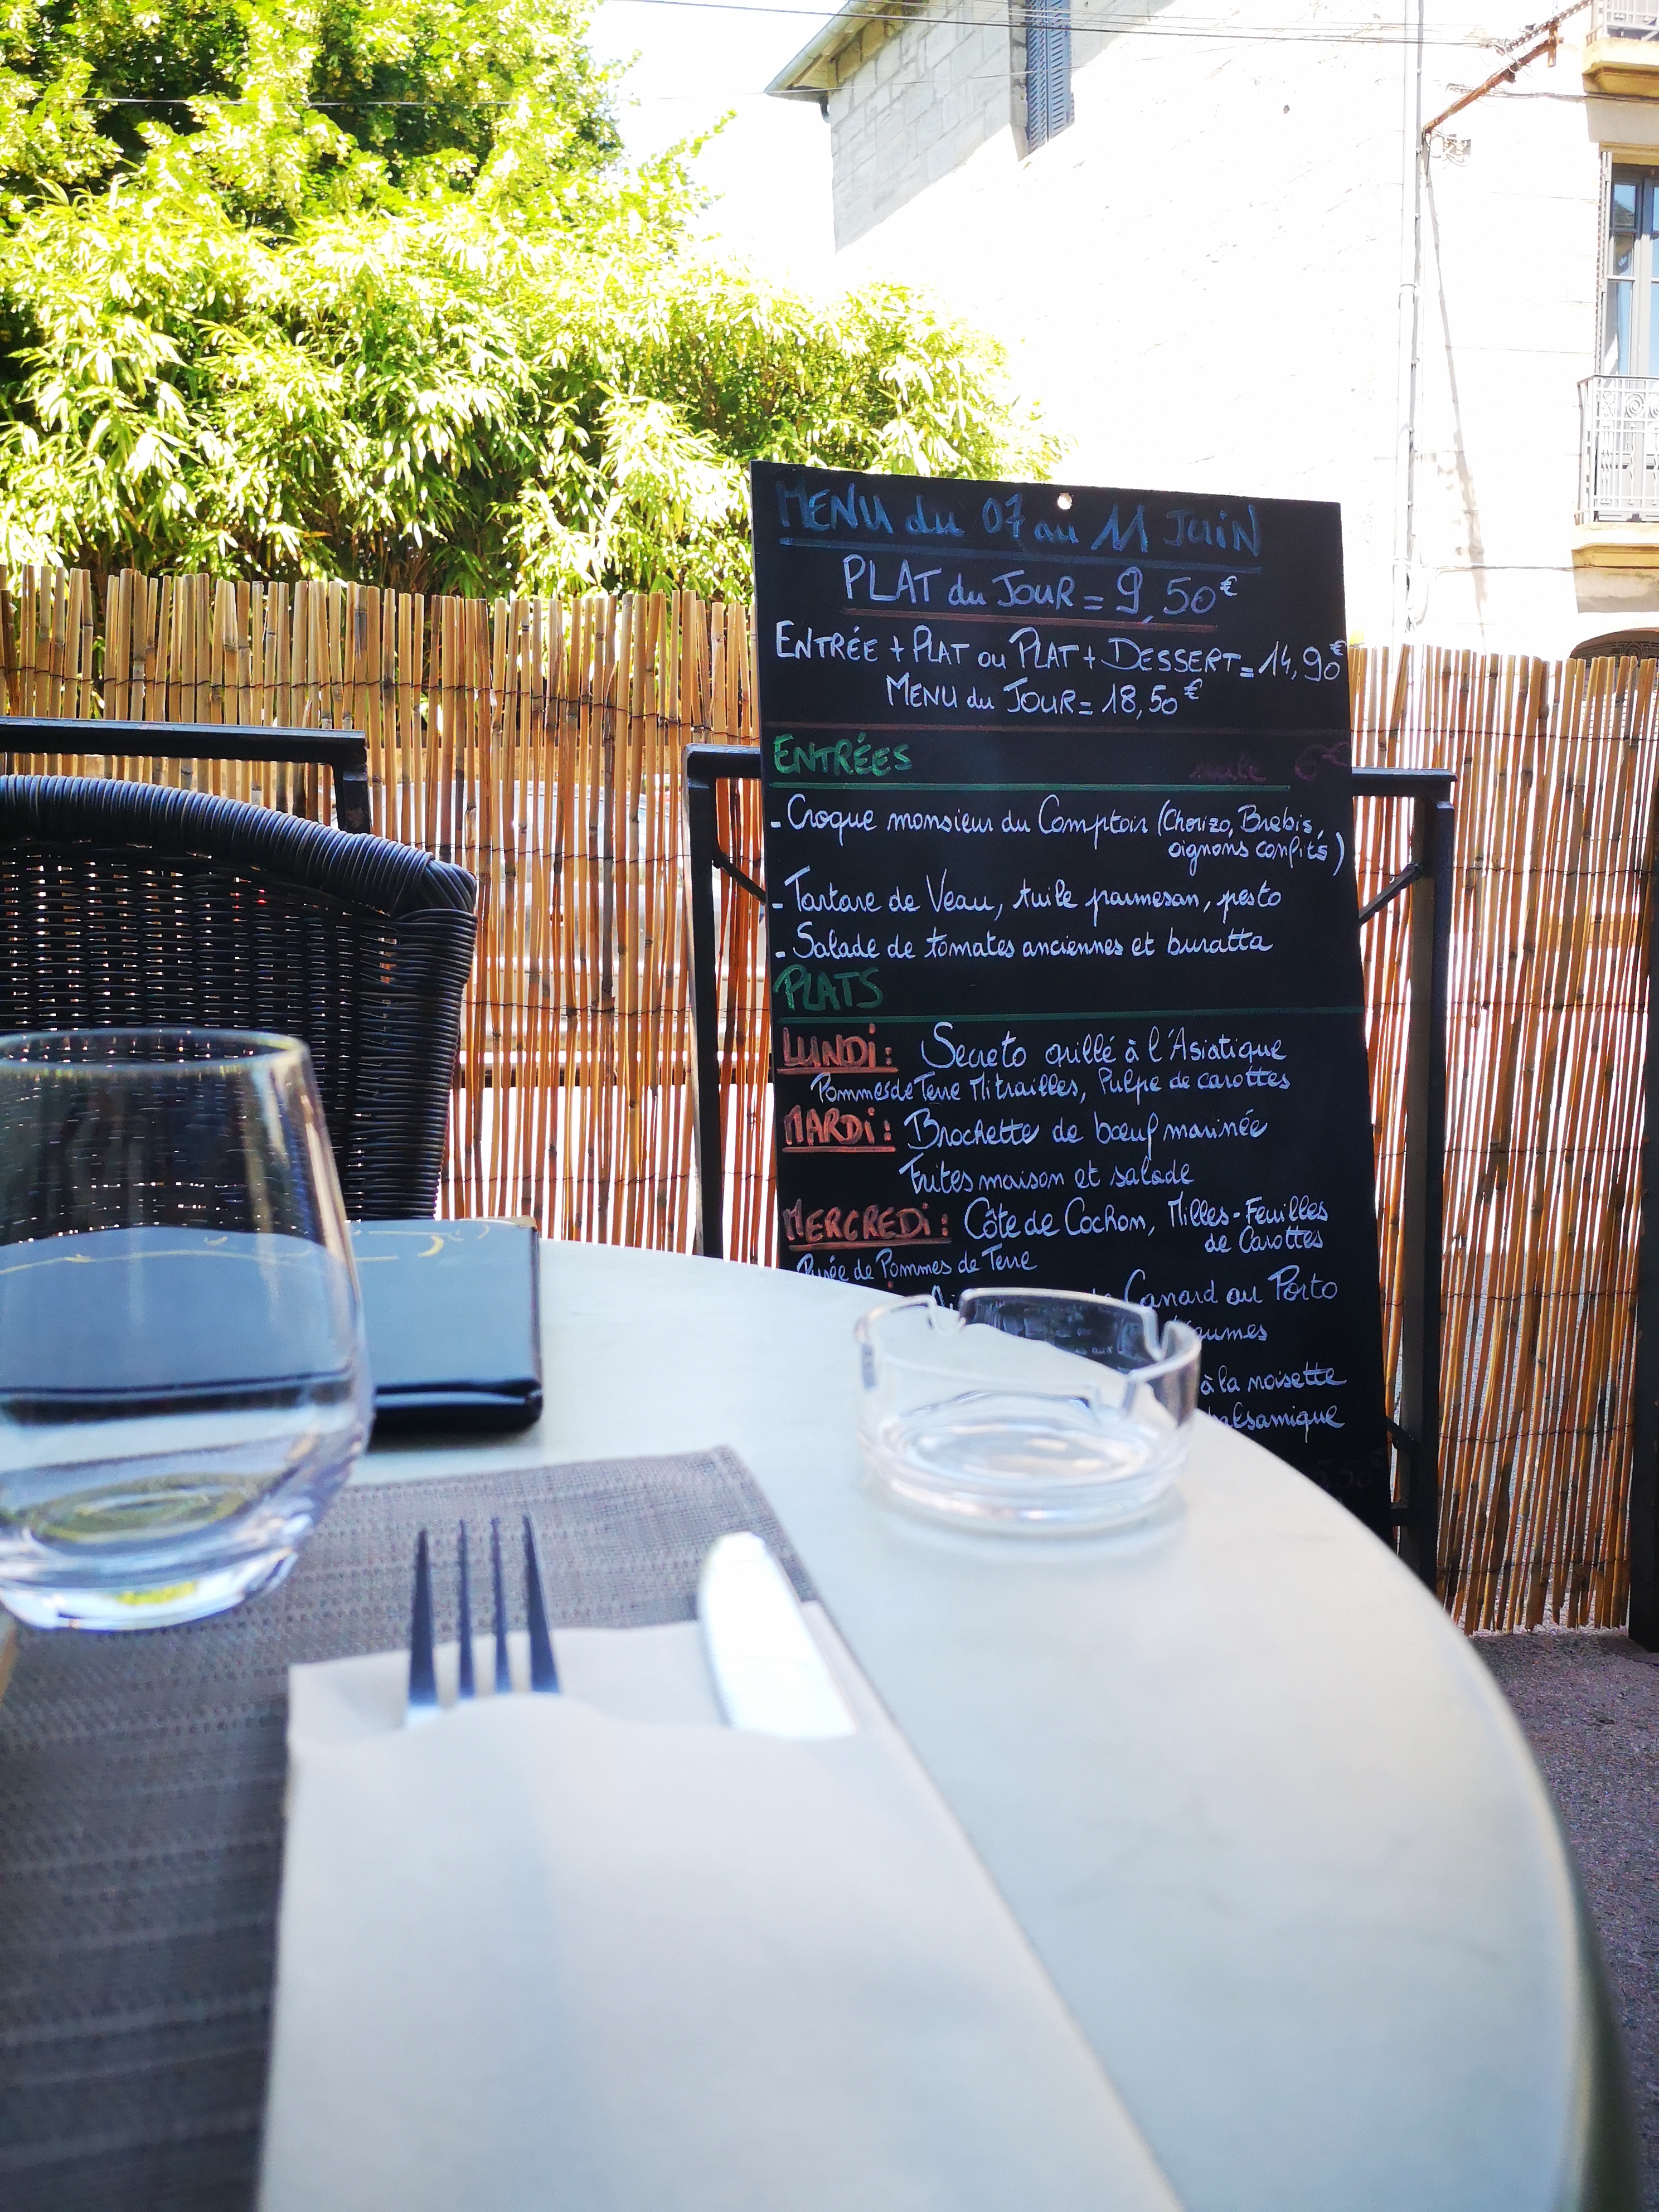 MENU du 07 au 11 JUIN
PLAT du JOUR = 9,50€
ENTRÉE + PLAT ou PLAT + DESSERT = 14,90€
MENU du JOUR = 18,50€
ENTRÉES seule 6€
- Croque monsieur du Comptoir (Chorizo, Brebis,
oignons confits)
- Tartare de Veau, tuile parmesan, pesto
- Salade de tomates anciennes et buratta
PLATS
LUNDI: Secreto grillé à l'Asiatique
Pommes de Terre Mitrailles, Pulpe de carottes
MARDI: Brochette de bœuf marinée
Frites maison et salade
MERCREDI: Côte de Cochon, Milles-Feuilles
de Carottes
Purée de Pommes de Terre
Canard au Porto
à la noisette
balsamique